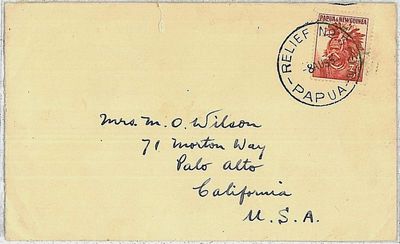 PAPUA & NEW GUINEA
RELIEF No
-PAPUA-
Mrs. M. O. Wilson
71 Morton Way
Palo Alto
California
U.S.A.